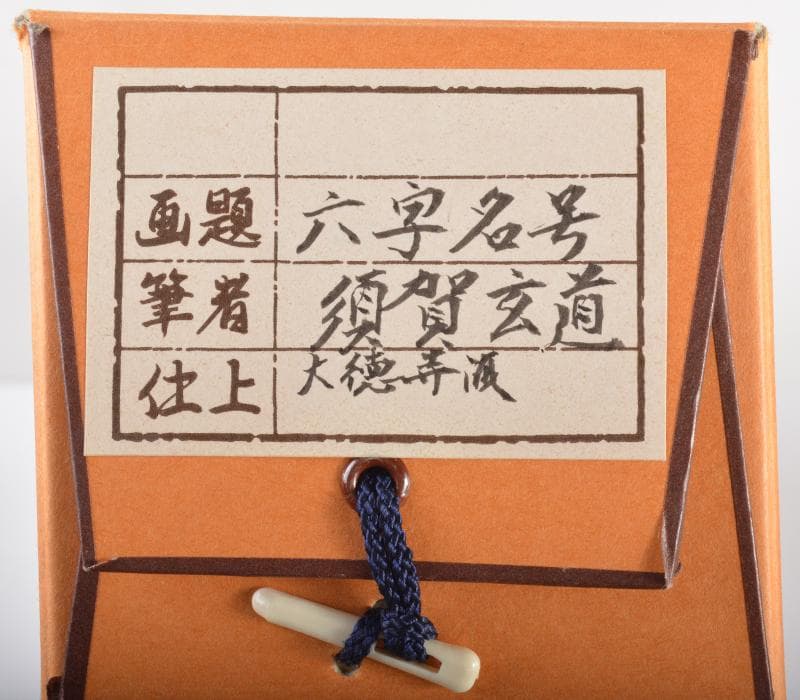 画題 六字名号
筆者 須賀玄道
仕上 大徳